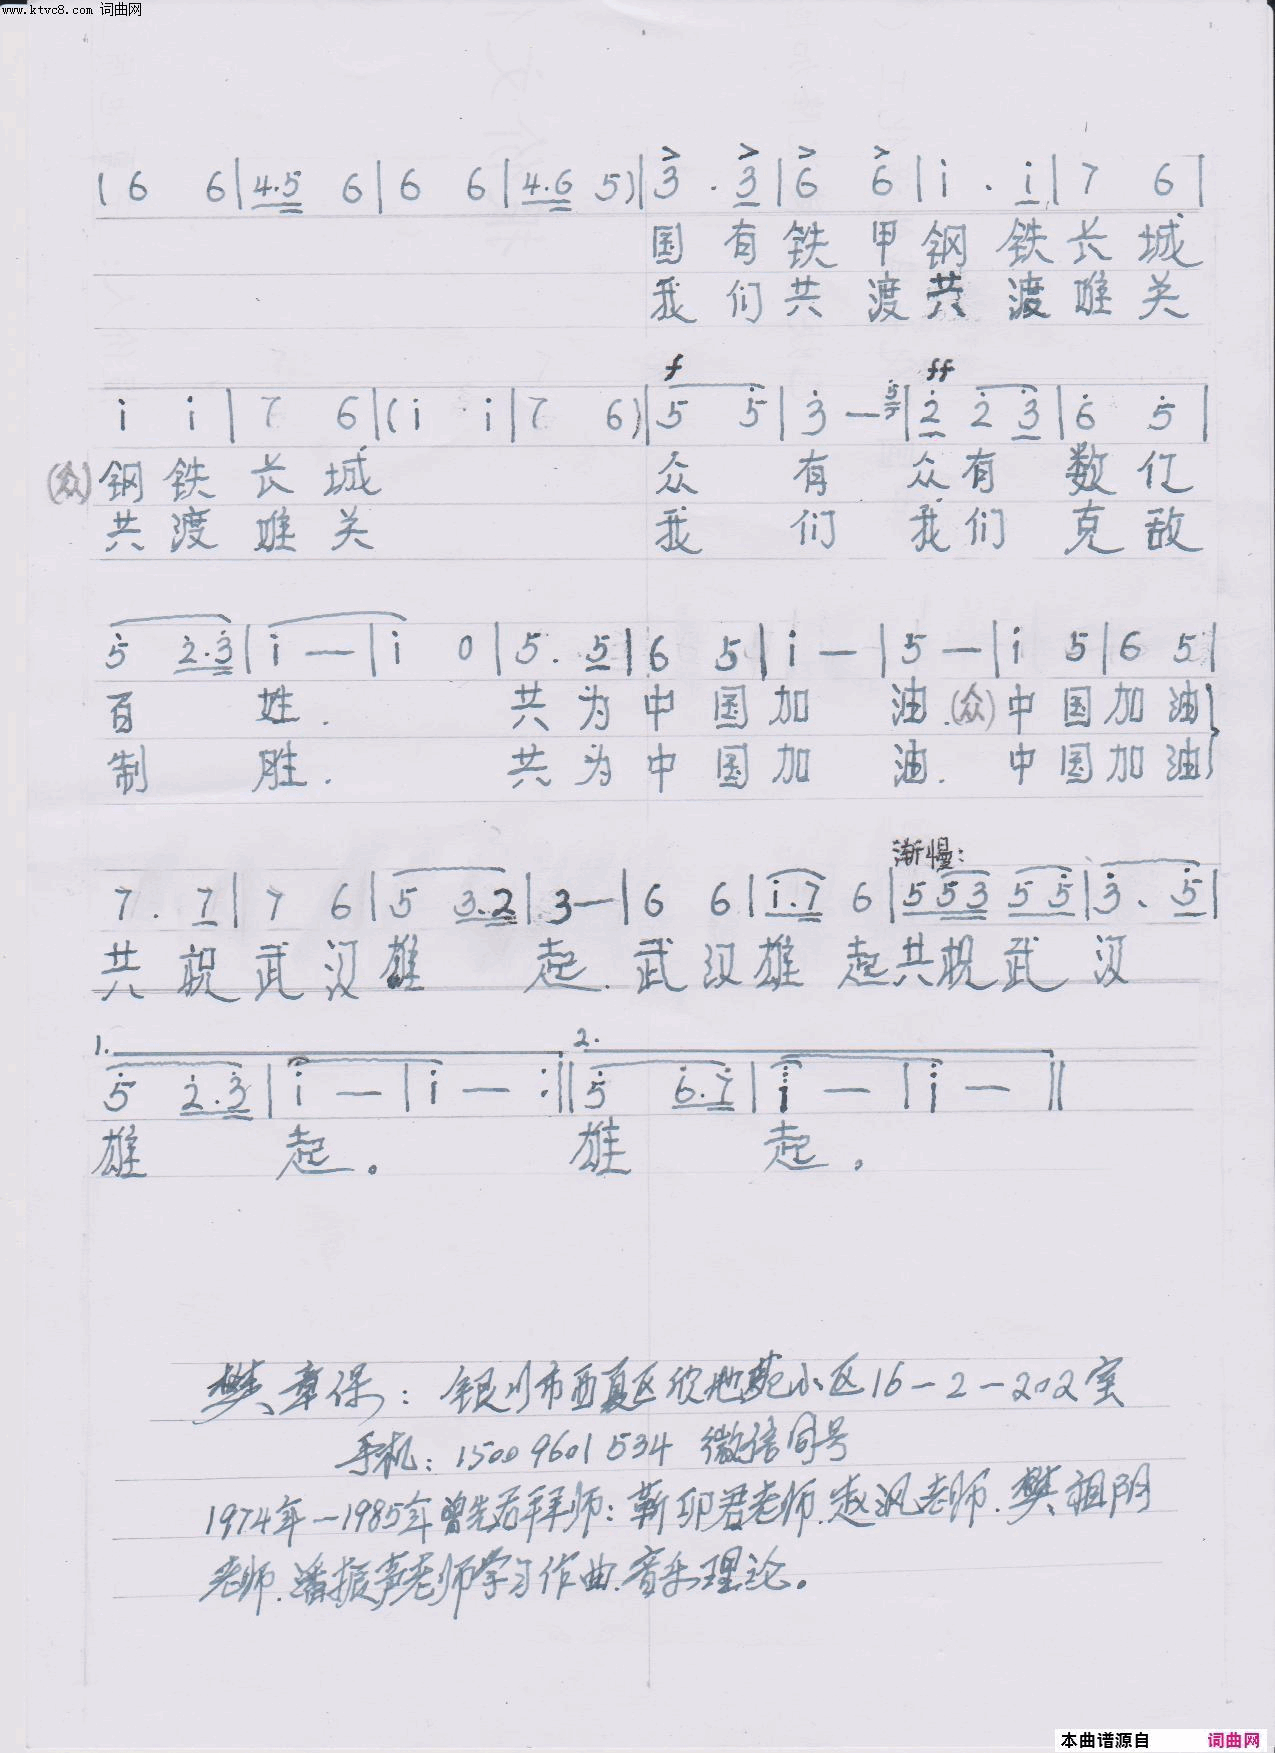 www.ktvc8.com 词曲网
(6 6|4.5 6|6 6|4.6 5)|3 . 3|6 6|i . i|7 6|
国有铁甲钢铁长城
我们共渡共渡难关
f ff
i i|7 6|(i i|7 6)|5 5|3 — 5|2 2 3|6 5|
(众)钢铁长城 众有众有数亿
共渡难关 我们我们克敌
5 2.3|i —|i 0|5. 5|6 5|i —|5 —|i 5|6 5|
百姓. 共为中国加油.(众)中国加油
制胜. 共为中国加油. 中国加油
渐慢:
7. 7|7 6|5 3.2|3—|6 6|i.7 6|5 5 3 5 5|3. 5|
共祝武汉雄起.武汉雄起共祝武汉
1. 2.
5 2.3|i —|i — :||5 6.7|i —|i —||
雄起。雄起。
樊章保:银川市西夏区欣地苑小区16-2-202室
手机:15009601534 微信同号
1974年—1985年曾先后拜师:靳卯君老师.赵沨老师.樊祖阴
老师.潘振声老师学习作曲.音乐理论。
本曲谱源自 词曲网